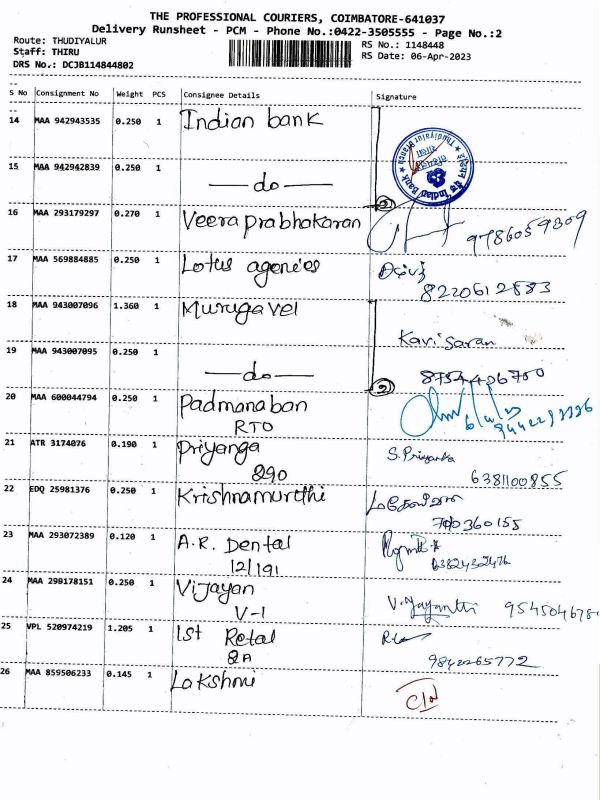 THE PROFESSIONAL COURIERS, COIMBATORE-641037
Delivery Runsheet - PCM - Phone No.:0422-3505555 - Page No.:2
Route: THUDIYALUR
Staff: THIRU
DRS No.: DCJB114844802
RS No.: 1148448
RS Date: 06-Apr-2023
S No Consignment No Weight PCS Consignee Details Signature
14 MAA 942943535 0.250 1 Indian bank
15 MAA 942942839 0.250 1 —do—
Indian Bank
Thudiyalur Branch
2
16 MAA 293179297 0.270 1 Veeraprabhakaran 9786059309
17 MAA 569884885 0.250 1 Lotus agencies
8220612883
18 MAA 943007096 1.360 1 Murugavel
Kavi Saran
19 MAA 943007095 0.250 1 —do— 8754426700
2
20 MAA 600044794 0.250 1 Padmanaban
RTO
21 ATR 3174076 0.190 1 Priyanga S. Priyanka
290 6381100855
22 EDQ 25981376 0.250 1 Krishnamurthi
23 MAA 293072389 0.120 1 A.R. Dental
12/191 6382432476
24 MAA 299178151 0.250 1 Vijayan
V-1 V.Jayanthi
25 VPL 520974219 1.205 1 1st Retal
2A 9842265772
26 MAA 859506233 0.145 1 Lakshmi